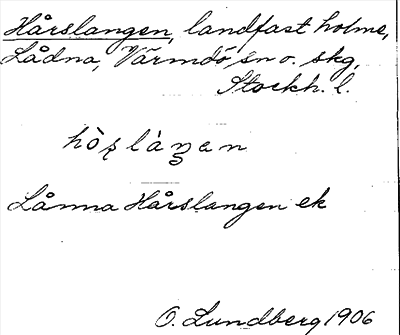 Hårslangen, landfast holme,
Lådna, Värmdö sn o. skg,
Stockh. l.
Lånna Hårslangen ek
O. Lundberg 1906